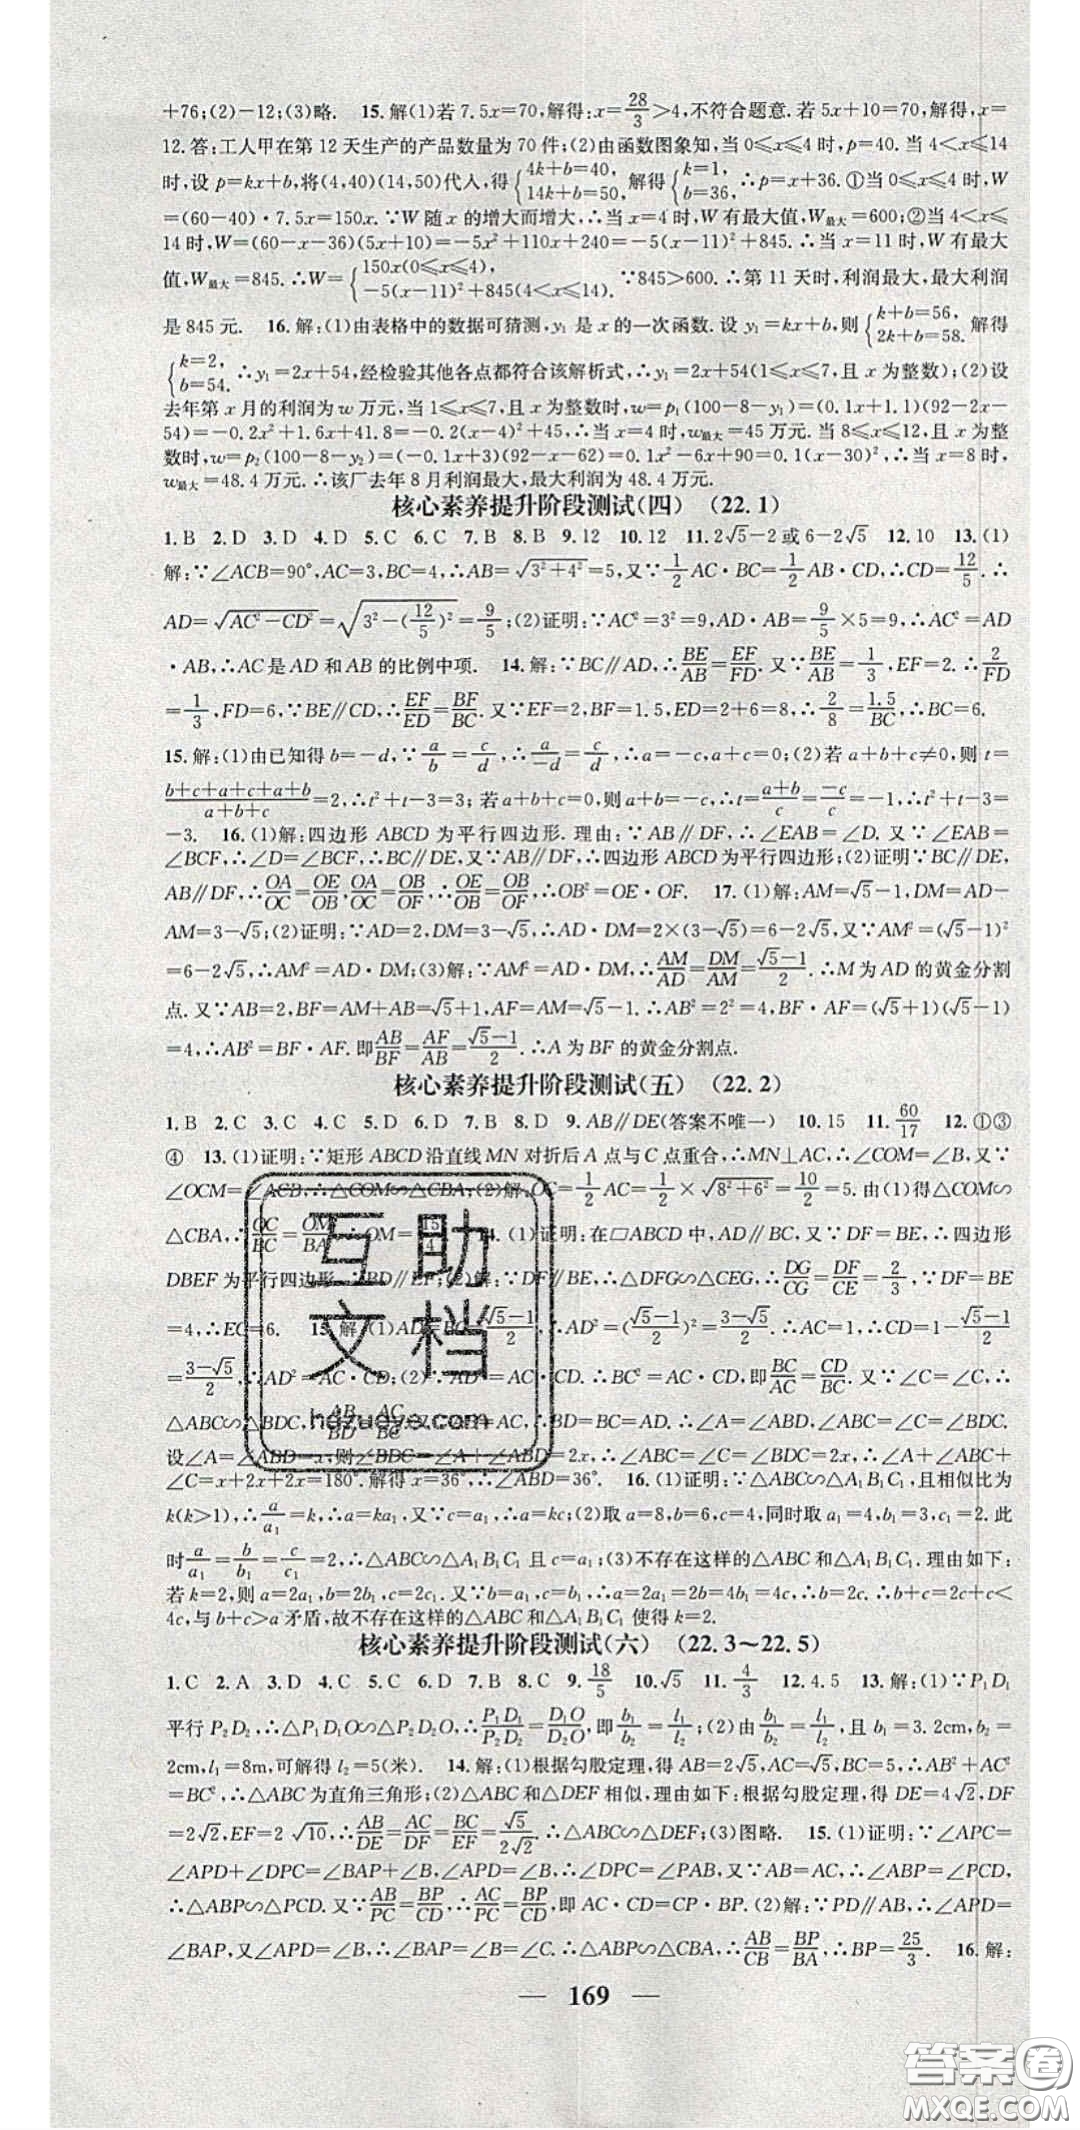 +76;(2)-12;(3)略. 15.解(1)若 7.5x=70,解得:x=28/3>4,不符合题意.若 5x+10=70,解得,x=
12.答:工人甲在第 12 天生产的产品数量为 70 件;(2)由函数图象知,当 0≤x≤4 时,p=40.当 4<x≤14
时,设 p=kx+b,将(4,40)(14,50)代人,得{4k+b=40, 14k+b=50, 解得{k=1, b=36, ∴p=x+36.①当 0≤x≤4 时,W
=(60-40)·7.5x=150x.∵W 随 x 的增大而增大,∴当 x=4 时,W 有最大值,W最大=600;②当 4<x≤
14 时,W=(60-x-36)(5x+10)=-5x²+110x+240=-5(x-11)²+845.∴当 x=11 时,W 有最大
值,W最大=845.∴W={150x(0≤x≤4), -5(x-11)²+845(4<x≤14). ∵845>600.∴第 11 天时,利润最大,最大利润
是 845 元. 16.解:(1)由表格中的数据可猜测,y₁ 是 x 的一次函数.设 y₁=kx+b,则{k+b=56, 2k+b=58. 解得
{k=2, b=54. ∴y₁=2x+54,经检验其他各点都符合该解析式,∴y₁=2x+54(1≤x≤7,且 x 为整数);(2)设
去年第 x 月的利润为 w 万元,当 1≤x≤7,且 x 为整数时,w=p₁(100-8-y₁)=(0.1x+1.1)(92-2x-
54)=-0.2x²+1.6x+41.8=-0.2(x-4)²+45,∴当 x=4 时,w最大=45 万元.当 8≤x≤12,且 x 为整
数时,w=p₂(100-8-y₂)=(-0.1x+3)(92-x-62)=0.1x²-6x+90=0.1(x-30)².∴当 x=8 时,
w最大=48.4 万元.∴该厂去年 8 月利润最大,最大利润为 48.4 万元.
核心素养提升阶段测试(四) (22.1)
1.B 2.D 3.D 4.D 5.C 6.C 7.B 8.B 9.12 10.12 11.2√5-2 或 6-2√5 12.10 13.(1)
解:∵∠ACB=90°,AC=3,BC=4,∴AB=√(3²+4²)=5,又∵1/2AC·BC=1/2AB·CD,∴CD=12/5.∴
AD=√(AC²-CD²)=√(3²-(12/5)²)=9/5;(2)证明:∵AC²=3²=9,AD·AB=9/5×5=9,∴AC²=AD
·AB,∴AC 是 AD 和 AB 的比例中项. 14.解:∵BC∥AD,∴BE/AB=EF/FD.又∵BE/AB=1/3,EF=2.∴2/FD
=1/3,FD=6,∵BE∥CD,∴EF/ED=BF/BC.又∵EF=2,BF=1.5,ED=2+6=8,∴2/8=1.5/BC,∴BC=6.
15.解:(1)由已知得 b=-d,∵a/b=c/d,∴a/-d=c/d,∴a=-c,a+c=0;(2)若 a+b+c≠0,则 t=
(b+c+a+c+a+b)/(a+b+c)=2,∴t²+t-3=3;若 a+b+c=0,则∴t=(a+b)/c=-c/c=-1,∴t²+t-3=
-3. 16.(1)解:四边形 ABCD 为平行四边形.理由:∵AB∥DF,∴∠EAB=∠D.又∵∠EAB=
∠BCF,∴∠D=∠BCF,∴BC∥DE,又∵AB∥DF,∴四边形 ABCD 为平行四边形;(2)证明∵BC∥DE,
AB∥DF,∴OA/OC=OE/OB,OA/OC=OB/OF,∴OE/OB=OB/OF,∴OB²=OE·OF. 17.(1)解:AM=√5-1,DM=AD-
AM=3-√5;(2)证明:∵AD=2,DM=3-√5,∴AD·DM=2×(3-√5)=6-2√5,又∵AM²=(√5-1)²
=6-2√5,∴AM²=AD·DM;(3)解:∵AM²=AD·DM,∴AM/AD=DM/AM=(√5-1)/2.∴M 为 AD 的黄金分割
点.又∵AB=2,BF=AM+AB=√5+1,AF=AM=√5-1.∴AB²=2²=4,BF·AF=(√5+1)(√5-1)
=4,∴AB²=BF·AF.即AB/BF=AF/AB=(√5-1)/2.∴A 为 BF 的黄金分割点.
核心素养提升阶段测试(五) (22.2)
1.B 2.C 3.C 4.C 5.D 6.D 7.B 8.D 9.AB∥DE(答案不唯一) 10.15 11.60/17 12.①③
④ 13.(1)证明:∵矩形 ABCD 沿直线 MN 对折后 A 点与 C 点重合,∴MN⊥AC,∴∠COM=∠B,又∵
∠OCM=∠ACB,∴△COM∽△CBA;(2)解:OC=1/2AC=1/2×√(8²+6²)=10/2=5.由(1)得△COM∽
△CBA,∴OC/BC=OM/BA,∴OM=15/4. 14.(1)证明:在□ABCD 中,AD∥BC,又∵DF=BE,∴四边形
DBEF 为平行四边形,∴BD∥EF;(2)解:∵DF∥BE,∴△DFG∽△CEG,∴DG/CG=DF/CE=2/3,∵DF=BE
=4,∴EC=6. 15.解:(1)AD=BC=(√5-1)/2,∴AD²=((√5-1)/2)²=(3-√5)/2.∴AC=1,∴CD=1-(√5-1)/2
=(3-√5)/2,∴AD²=AC·CD;(2)∵AD²=AC·CD.∴BC²=AC·CD,即BC/AC=CD/BC.又∵∠C=∠C,∴
△ABC∽△BDC,∴AB/BD=AC/BC.又∵AB=AC,∴BD=BC=AD.∴∠A=∠ABD,∠ABC=∠C=∠BDC.
设∠A=∠ABD=x,则∠BDC=∠A+∠ABD=2x,∴∠ABC=∠C=∠BDC=2x,∴∠A+∠ABC+
∠C=x+2x+2x=180°.解得 x=36°,∴∠ABD=36°. 16.(1)证明:∵△ABC∽△A₁B₁C₁,且相似比为
k(k>1),∴a/a₁=k,∴a=ka₁,又∵c=a₁,∴a=kc;(2)取 a=8,b=6,c=4,同时取 a₁=4,b₁=3,c₁=2.此
时a/a₁=b/b₁=c/c₁=2,∴△ABC∽△A₁B₁C₁ 且 c=a₁;(3)不存在这样的△ABC 和△A₁B₁C₁.理由如下:
若 k=2,则 a=2a₁,b=2b₁,c=2c₁.又∵b=a₁,c=b₁,∴a=2a₁=2b=4b₁=4c,∴b=2c.∴b+c=2c+c<
4c,与 b+c>a 矛盾,故不存在这样的△ABC 和△A₁B₁C₁ 使得 k=2.
核心素养提升阶段测试(六) (22.3～22.5)
1.C 2.A 3.D 4.C 5.C 6.D 7.B 8.C 9.18/5 10.√5 11.4/3 12.4.5 13.解:(1)∵P₁D₁
平行 P₂D₂,∴△P₁D₁O∽△P₂D₂O,∴P₁D₁/P₂D₂=D₁O/D₂O,即b₁/b₂=l₁/l₂;(2)由b₁/b₂=l₁/l₂,且 b₁=3.2cm,b₂=
2cm,l₁=8m,可解得 l₂=5(米). 14.解:(1)根据勾股定理,得 AB=2√5,AC=√5,BC=5,∴AB²+AC²
=BC²,∴△ABC 为直角三角形;(2)△ABC 和△DEF 相似,理由如下:根据勾股定理,得 DE=4√2,DF
=2√2,EF=2√10,∴AB/DE=AC/DF=BC/EF=√5/2√2.∴△ABC∽△DEF;(3)图略. 15.(1)证明:∵∠APC=
∠APD+∠DPC=∠BAP+∠B,∠APD=∠B,∴∠DPC=∠PAB,又∵AB=AC,∴∠ABP=∠PCD,
∴△ABP∽△PCD.又∵AB/PC=BP/CD,∴AC/PC=BP/CD,即 AC·CD=CP·BP.(2)解:∵PD∥AB,∴∠APD=
∠BAP,又∠APD=∠B,∴∠BAP=∠B=∠C.∴△ABP∽△CBA,∴AB/CB=BP/BA,∴BP=25/3. 16.解:
— 169 —
互助文档
hdzuoye.com
答案圈
MXQE.COM